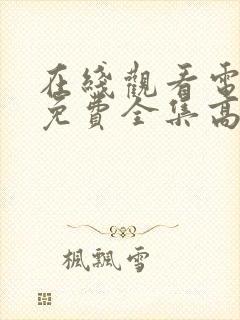 在綫觀看電
免費全集高
楓飄雪